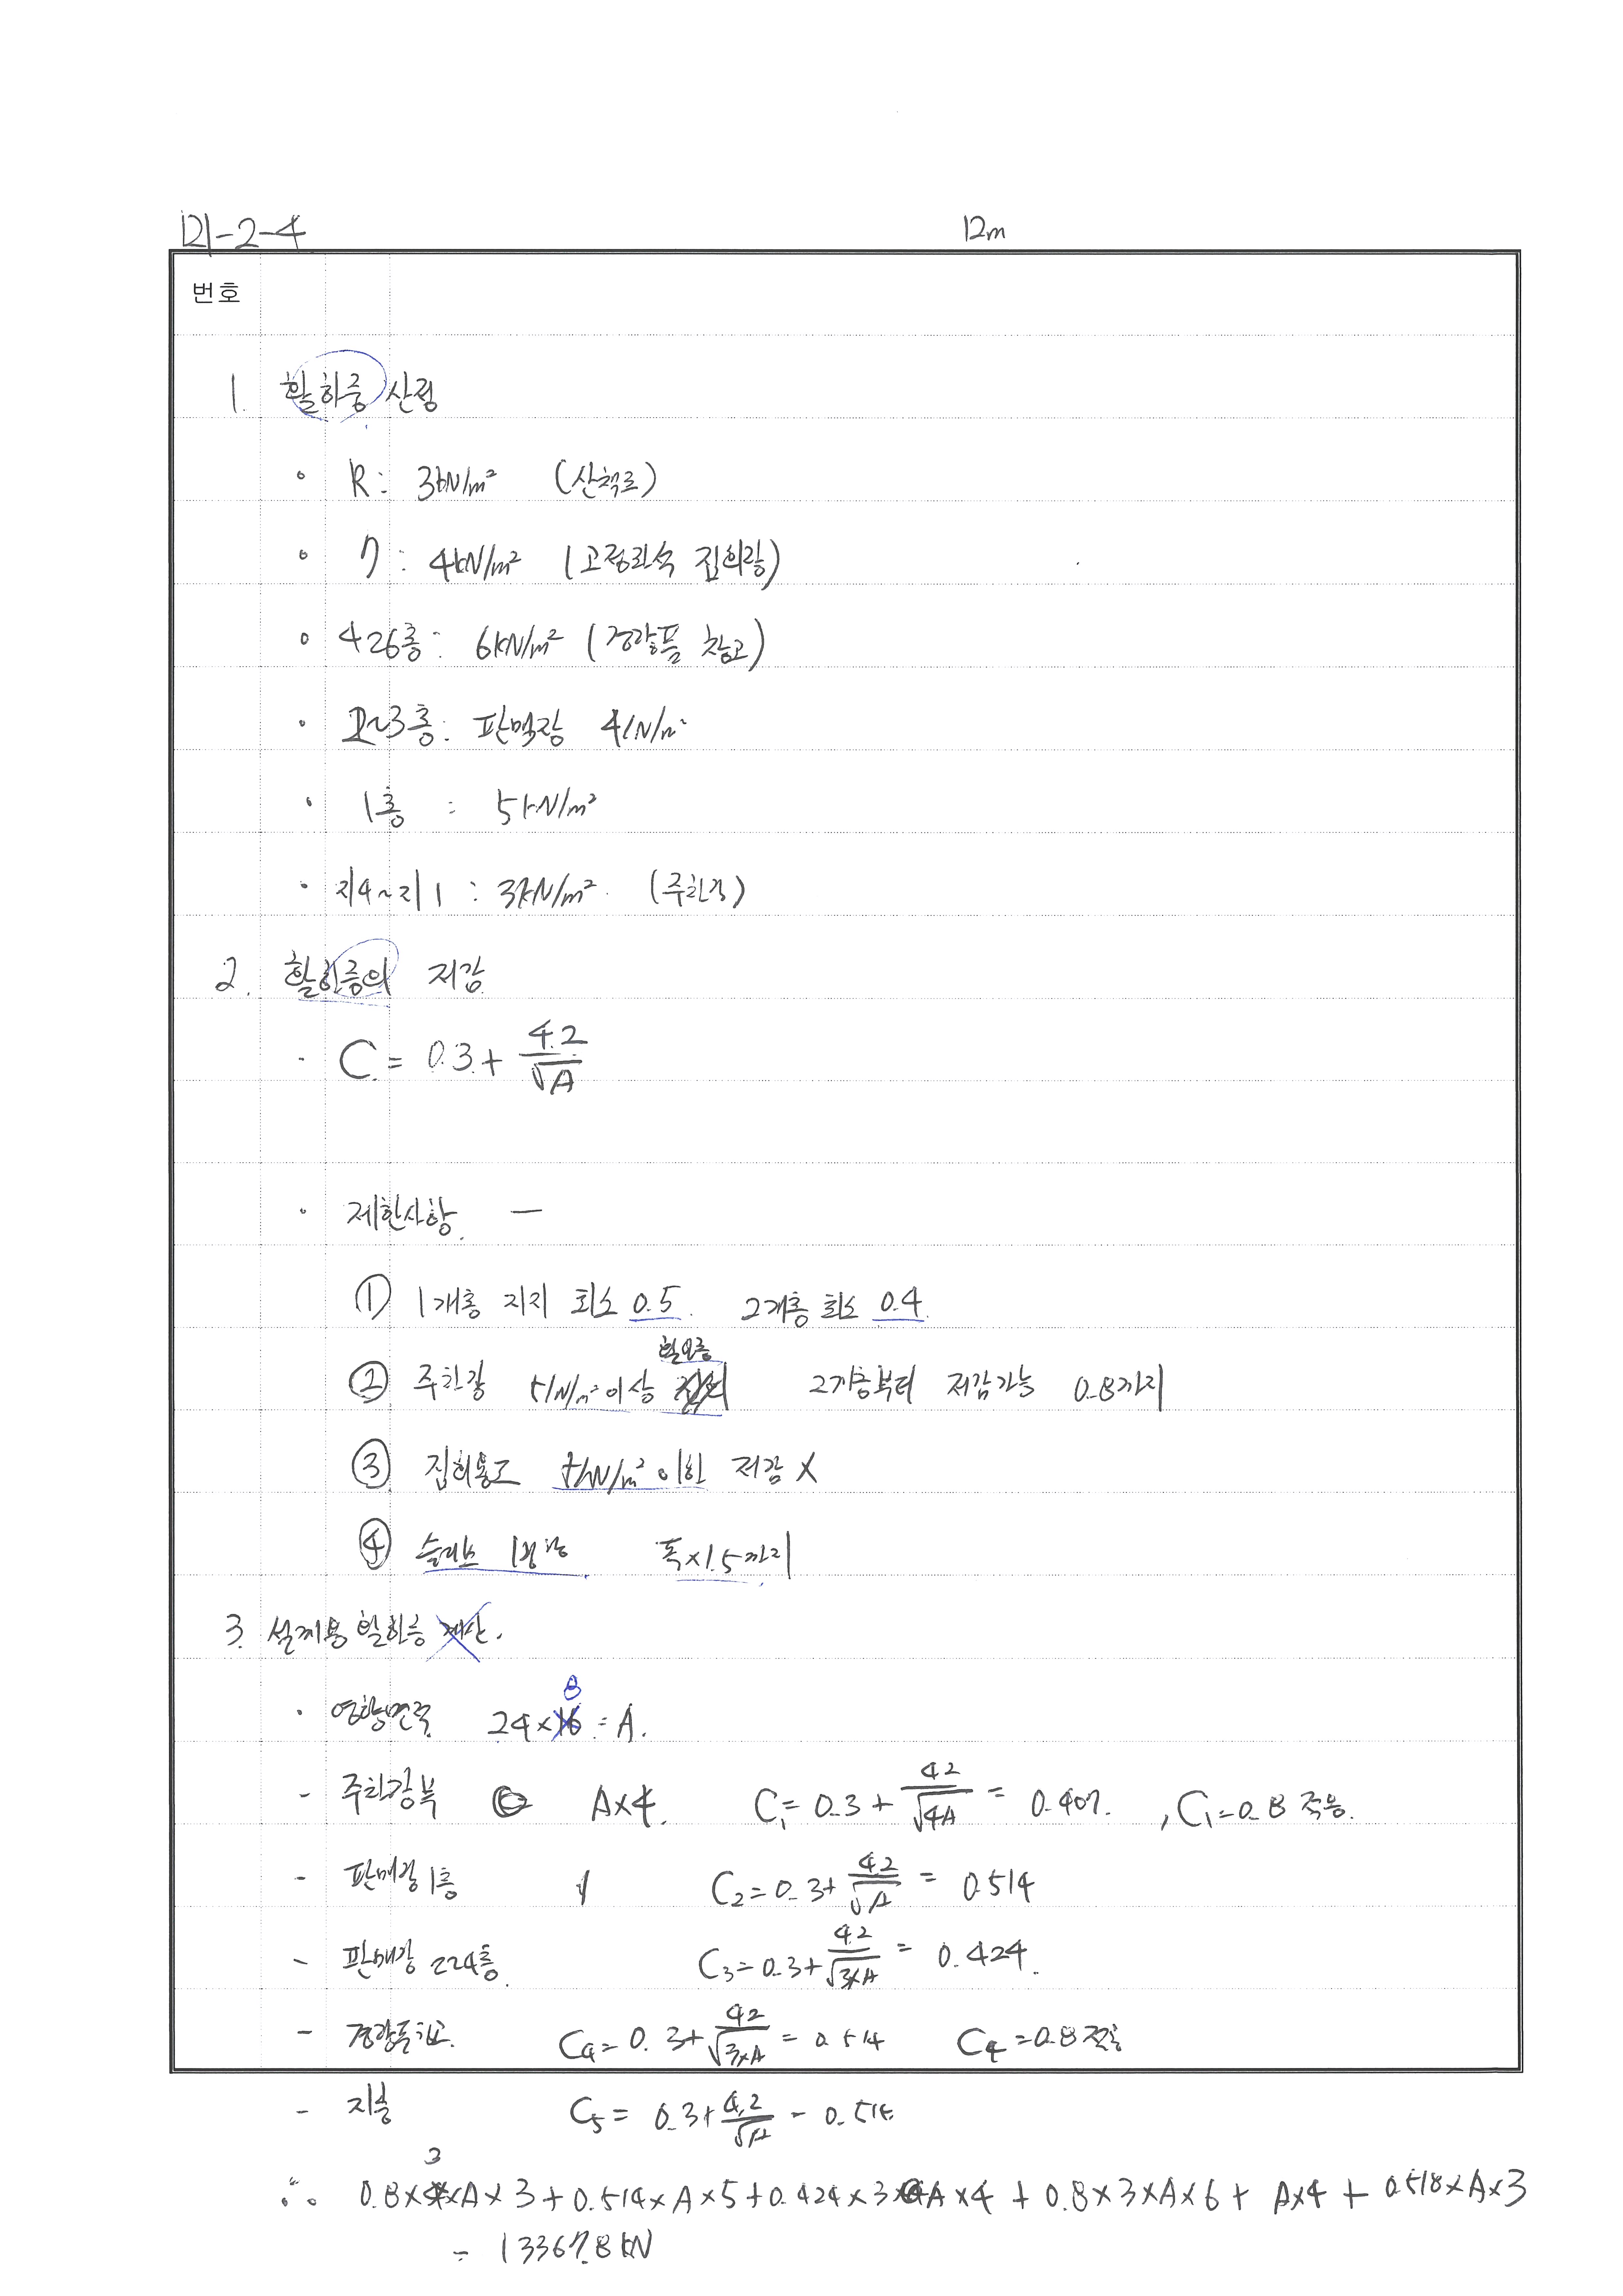 121-2-4 12m
번호
1. 활하중 산정
∘ R : 3kN/m² (산책로)
∘ 7 : 4kN/m² (고정좌석 집회장)
∘ 4~6층 : 6kN/m² (경량품 창고)
· 2~3층 : 판매장 4kN/m²
· 1층 : 5kN/m²
· 지4~지1 : 3kN/m² (주차장)
2. 활하중의 저감
· C = 0.3 + 4.2/√A
· 제한사항 —
① 1개층 지지 최소 0.5. 2개층 최소 0.4
② 주차장 5kN/m² 이상 활하중 2개층부터 저감가능 0.8까지
③ 집회용도 5kN/m² 이하 저감 X
④ 슬라브 1방향 폭×1.5까지
3. 설계용 활하중
· 영향면적 24×8 = A.
- 주차장부 A×4. C₁= 0.3 + 4.2/√4A = 0.407. , C₁=0.8 적용.
- 판매장 1층 C₂=0.3+ 4.2/√A = 0.514
- 판매장 224층. C₃=0.3+ 4.2/√3×A = 0.424.
- 경량품창고. C₄= 0.3+ 4.2/√3×A = 0.514 C₄=0.8 적용
- 지붕 C₅= 0.3+ 4.2/√A = 0.514
∴ 0.8×4×A×3+0.514×A×5+0.424×3×A×4 + 0.8×3×A×6 + A×4 + 0.518×A×3
= 13367.8kN